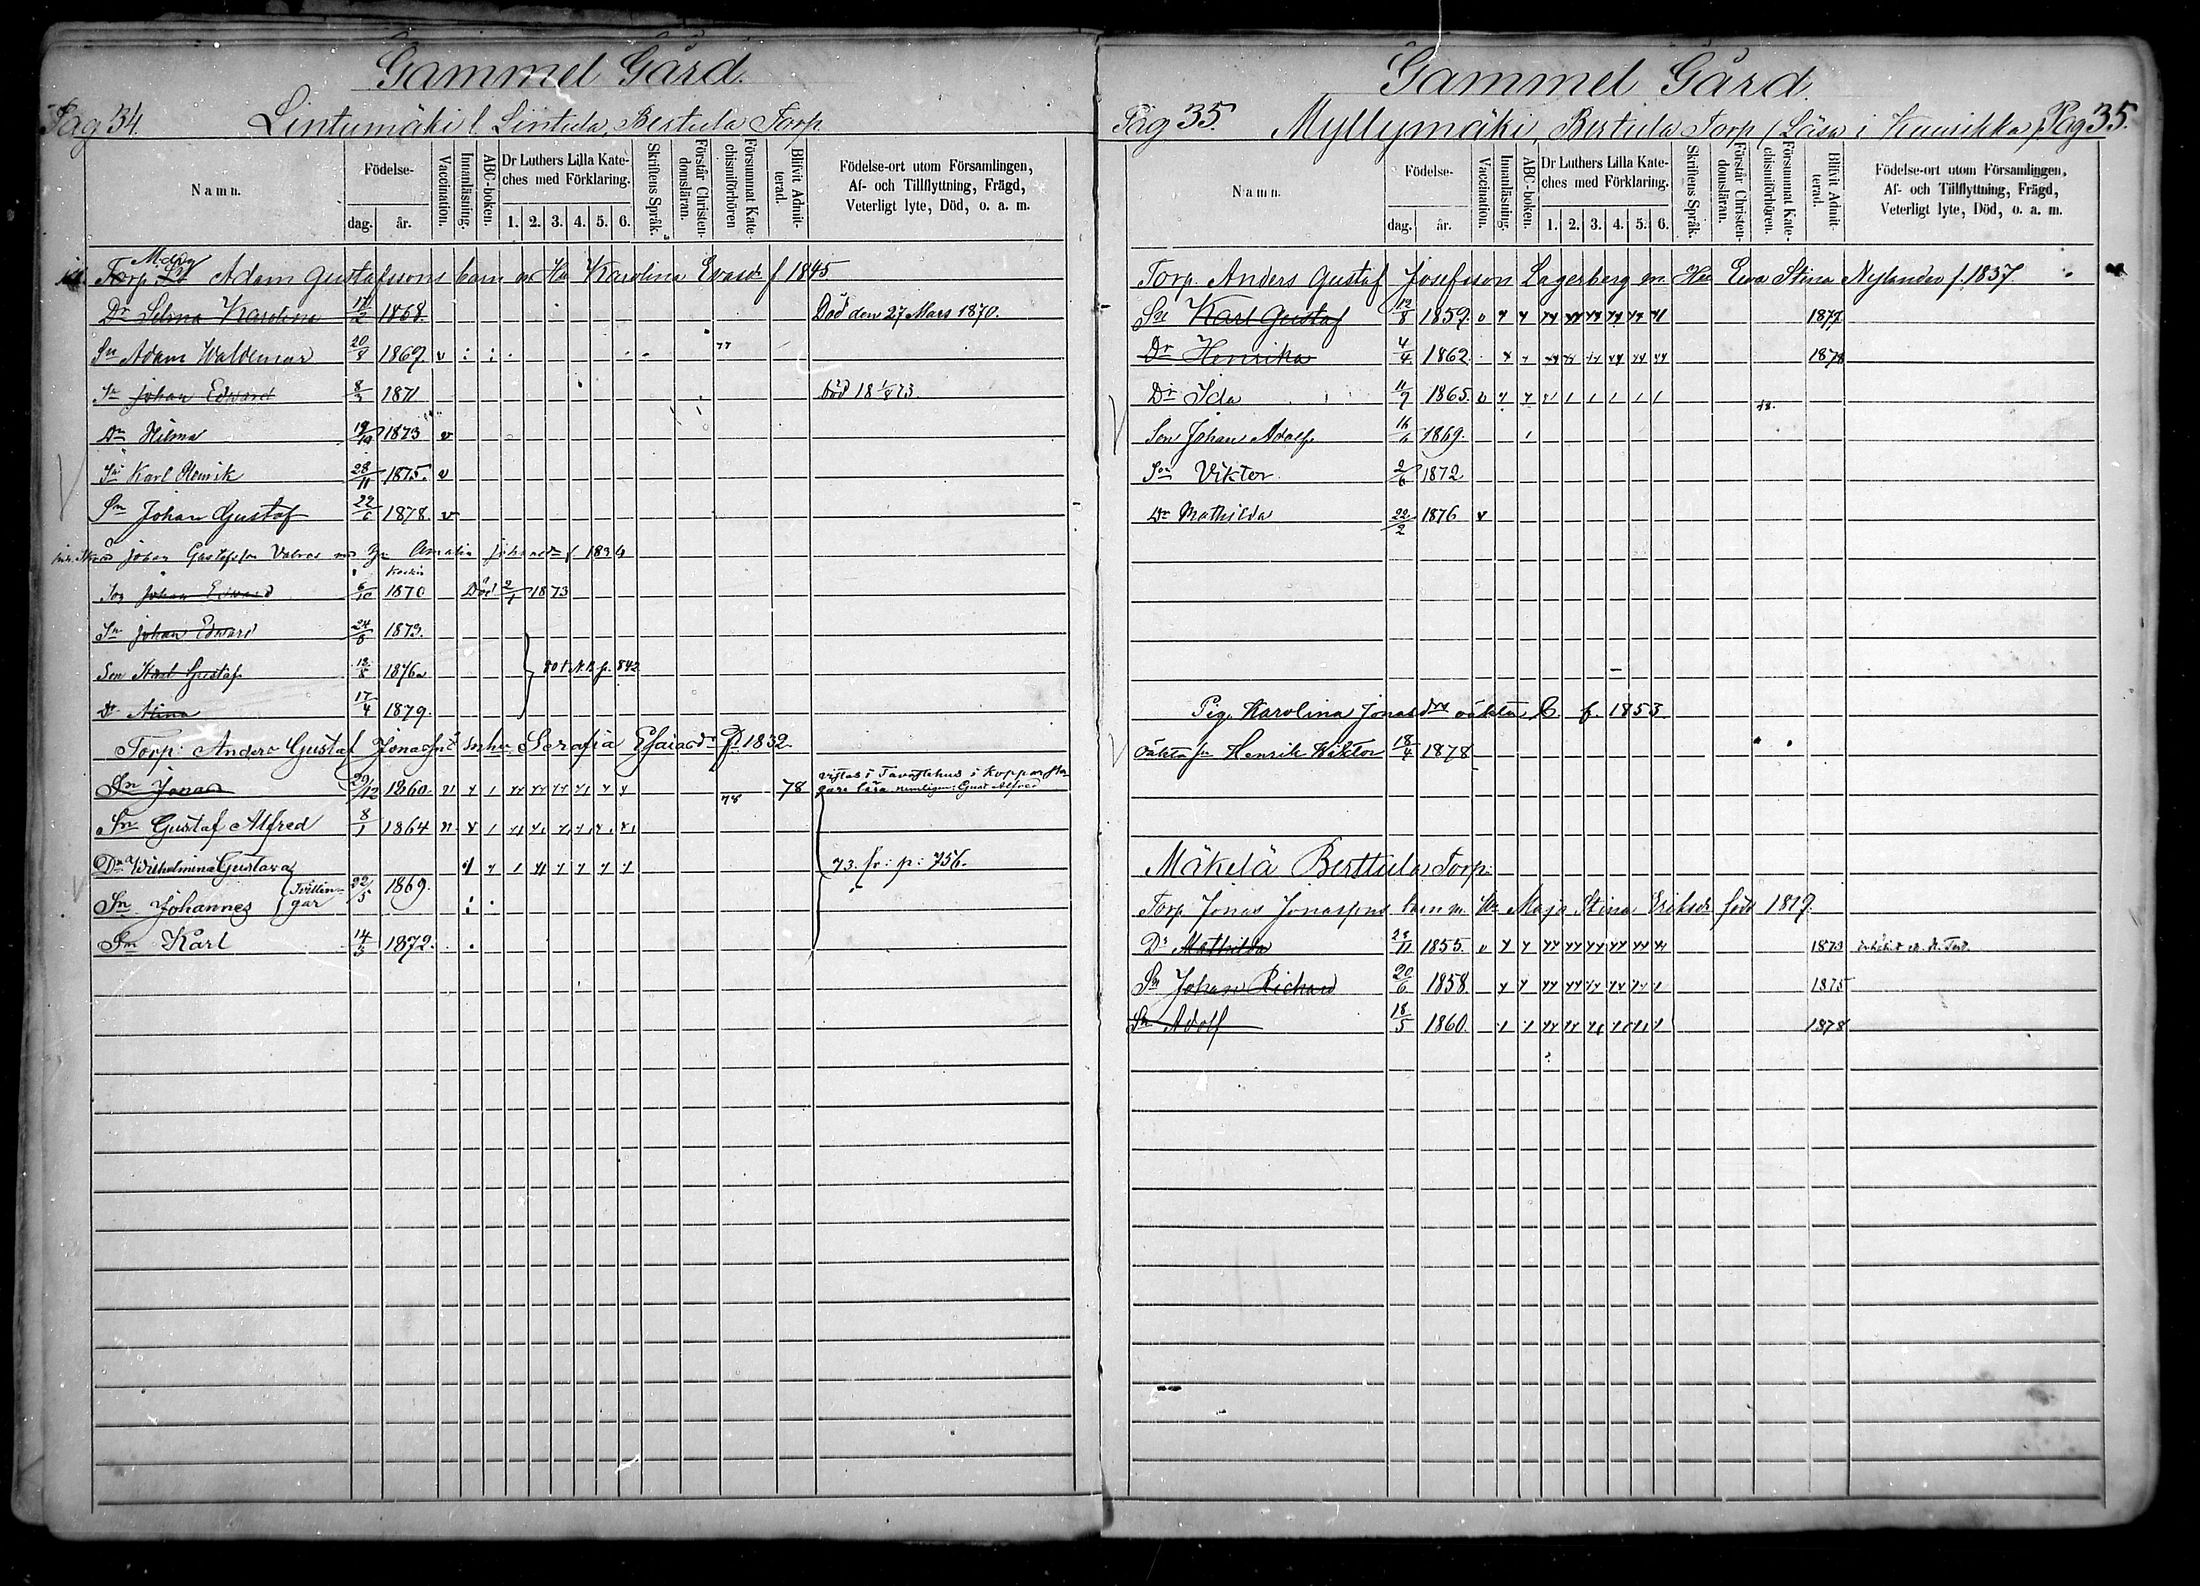 Gammel Gård.
Pag 34. Lintumäki l. Lintula, Bertula Torp.
Namn. Födelse- dag. år. Vaccination. Innanläsning. ABC-boken. Dr Luthers Lilla Kateches med Förklaring. 1. 2. 3. 4. 5. 6. Skriftens Språk. Förstår Christendomsläran. Försummat Katechismiförhören Blifvit Admitterad. Födelse-ort utom Församlingen, Af- och Tillflyttning, Frägd, Veterligt lyte, Död, o. a. m.
Torp. Adam Gustafssons barn m Hu Karolina Evasdr f 1845
Dr Selma Karolina 1868. Död den 27 Mars 1870.
Sn Adam Waldemar 20/8 1869 v 77
Sn Johan Edward 8/3 1871 Död 18 73
Dr Hilma 1873 v
Sn Karl Henrik 28/11 1875. v
Sn Johan Gustaf 22/6 1878. v
Johan Amalia f 1834
Son Johan Edward 6/10 1870 Död 2/1 1873
Sn Johan Edward 24/8 1873.
Son Karl Gustaf 1876 p. 842
Dr 17/4 1879.
Torp: Anders Gustaf Hu Serafia Esaiasdr f 1832
Sn Jonas 29/12 1860 78 78 vistas i Tavastehus i Koppar
lära nemligen: Gust Alfred
Sn Gustaf Alfred 8/1 1864
Dra Wilhelmina Gustava 73. fr: p: 756.
Sn Johannes (Tvillingar 22/5 1869.
Sn Karl 14/3 1872.
Gammel Gård.
Pag 35. Myllymäki, Bertula Torp (Läsa i Kuurikka) Pag 35.
Namn. Födelse- dag. år. Vaccination. Innanläsning. ABC-boken. Dr Luthers Lilla Kateches med Förklaring. 1. 2. 3. 4. 5. 6. Skriftens Språk. Förstår Christendomsläran. Försummat Katechismiförhören. Blifvit Admitterad. Födelse-ort utom Församlingen, Af- och Tillflyttning, Frägd, Veterligt lyte, Död, o. a. m.
Torp. Anders Gustaf Josefsson Lagerberg m. Hu Ewa Stina Nylander f. 1837.
Sn Karl Gustaf 12/8 1859. 1877
Dr Henrika 4/4 1862. 1878
Dr Ida 11/9 1865. v 78.
Son Johan Adolf 16/6 1869.
Son Viktor 2/6 1872
Dr Mathilda 22/2 1876 v
Pig. Karolina Jonasdrs oäkta b. f. 1853
oäkta sn Henrik Wiktor 18/4 1878
Mäkelä Berttula Torp:
Torp Jonas Jonassons barn m. Hu Maja Stina Eriksdr född 1819.
Dr Mathilda 1855. v 1873
Sn Johan Richard 20/6 1858. 1875
Sn Adolf 18/5 1860. 1878